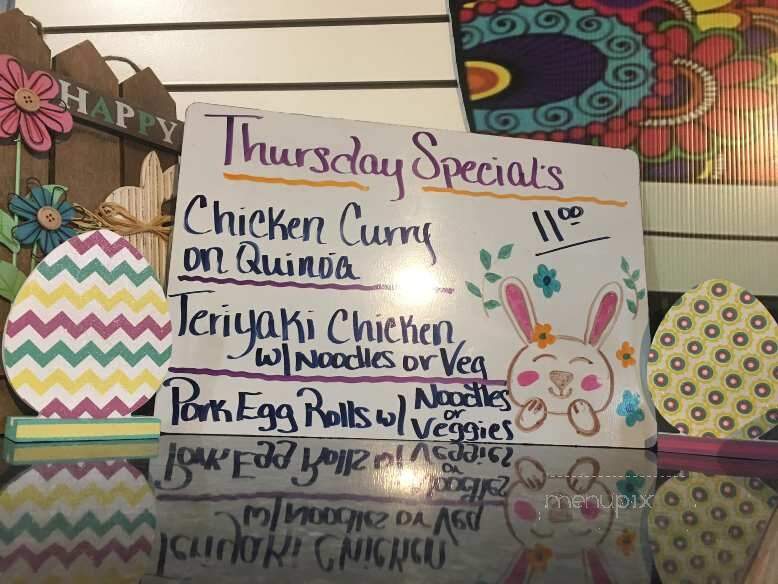 HAPPY
Thursday Specials
11.00
Chicken Curry
on Quinoa
Teriyaki Chicken
w/ Noodles or Veg
Pork Egg Rolls w/ Noodles
or
Veggies
menupix